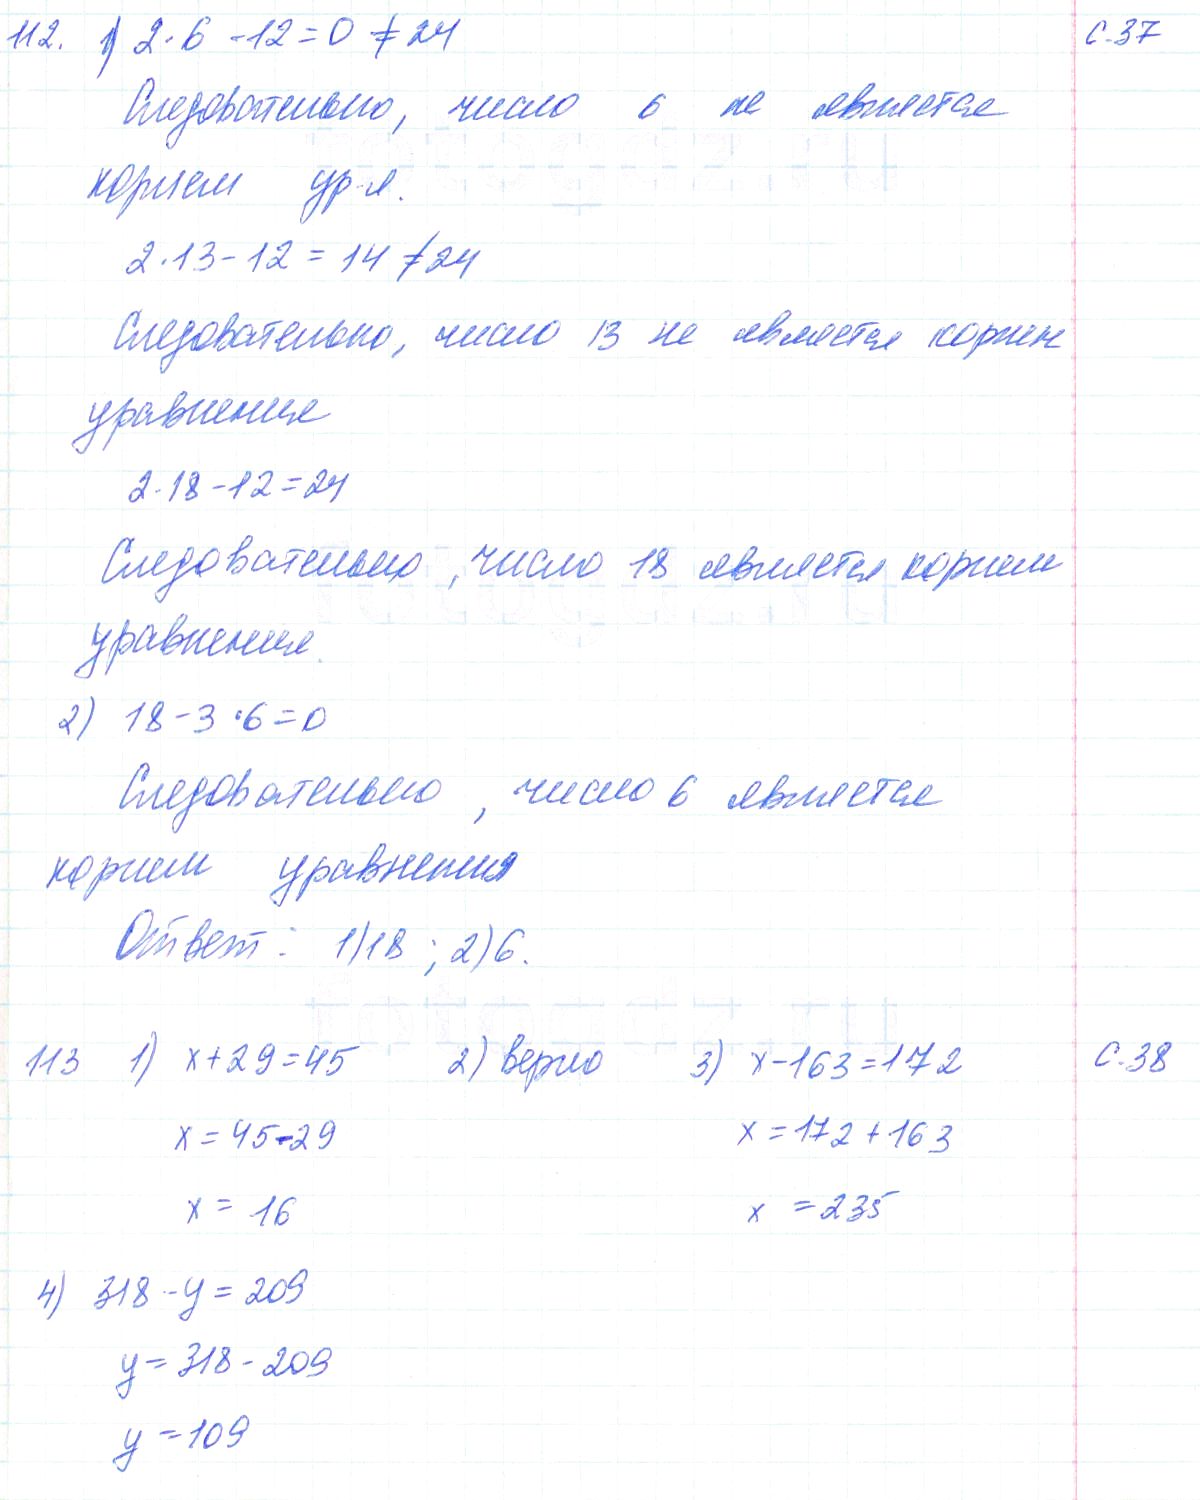 112. 1) 2·6 -12=0 ≠24 с.37
Следовательно, число 6 не является
корнем ур-я.
2·13-12=14 ≠24
Следовательно, число 13 не является корнем
уравнения
2·18-12=24
Следовательно, число 18 является корнем
уравнения.
2) 18-3·6=0
Следовательно, число 6 является
корнем уравнения
Ответ: 1)18 ; 2)6.
113 1) x+29=45 2) верно 3) x-163=172 с.38
x=45-29 x=172+163
x= 16 x =235
4) 318-y=209
y=318-209
y=109